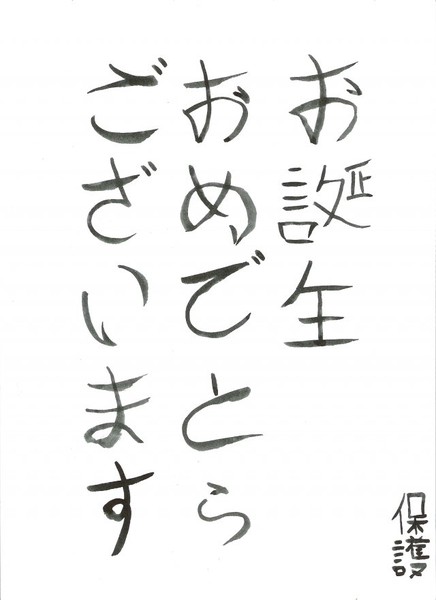 お誕生
おめでとう
ございます